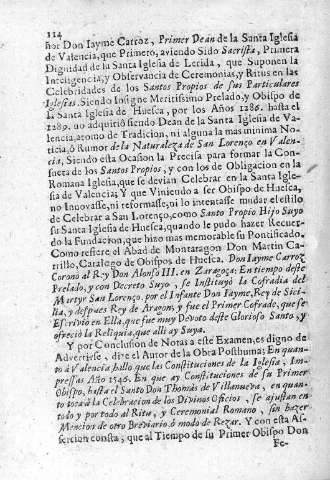 114
por Don Iayme Carroz, Primer Dean de la Santa Iglesia
de Valencia, que Primero, aviendo Sido Sacrista, Primera
Dignidad de la Santa Iglesia de Lerida, que Suponen la
Inteligencia, y Observancia de Ceremonias, y Ritus en las
Celebridades de los Santos Propios de sus Particulares
Iglesias. Siendo Insigne Meritissimo Prelado, y Obispo de
la Santa Iglesia de Huesca, por los Años 1286. hasta el
1289. no adquiriò siendo Dean de la Santa Iglesia de Va-
lencia, atomo de Tradicion, ni alguna la mas minima No-
ticia, ò Rumor de la Naturaleza de San Lorenço en Valen-
cia, Siendo esta Ocasion la Precisa para formar la Con-
sueta de los Santos Propios, y con los de Obligacion en la
Romana Iglesia, que se devian Celebrar en la Santa Igle-
sia de Valencia; Y que Viniendo a ser Obispo de Huesca,
no Innovasse, ni reformasse, ni lo intentasse mudar el estilo
de Celebrar a San Lorenço, como Santo Propio Hijo Suyo
su Santa Iglesia de Huesca, quando le pudo hazer Recuer-
do la Fundacion, que hizo mas memorable su Pontificado.
Como refiere el Abad de Montaragon Don Martin Ca-
rrillo, Catalogo de Obispos de Huesca. Don Iayme Carroz
Coronò al Rey Don Alonso III. en Zaragoça: En tiempo deste
Prelado, y con Decreto Suyo, se Instituyò la Cofradia del
Martyr San Lorenço, por el Infante Don Iayme, Rey de Sici-
lia, y despues Rey de Aragon, y fue el Primer Cofrade, que se
Escriviò en Ella, que fue muy Devoto deste Glorioso Santo, y
ofreciò la Reliquia, que alli ay Suya.
Y por Conclusion de Notas a este Examen, es digno de
Advertirse, dize el Autor de la Obra Posthuma: En quan-
to à Valencia hallo que las Constituciones de la Iglesia, Im-
pressas Año 1546. En que ay Constituciones de su Primer
Obispo, hasta el Santo Don Thomàs de Villanueva, en quan-
to toca à la Celebracion de los Divinos Oficios, se ajustan en
todo y por todo al Ritu, y Ceremonial Romano, sin hazer
Mencion de otro Breviario ò modo de Rezar. Y con esta As-
sercion consta, que al Tiempo de su Primer Obispo Don
Fe-